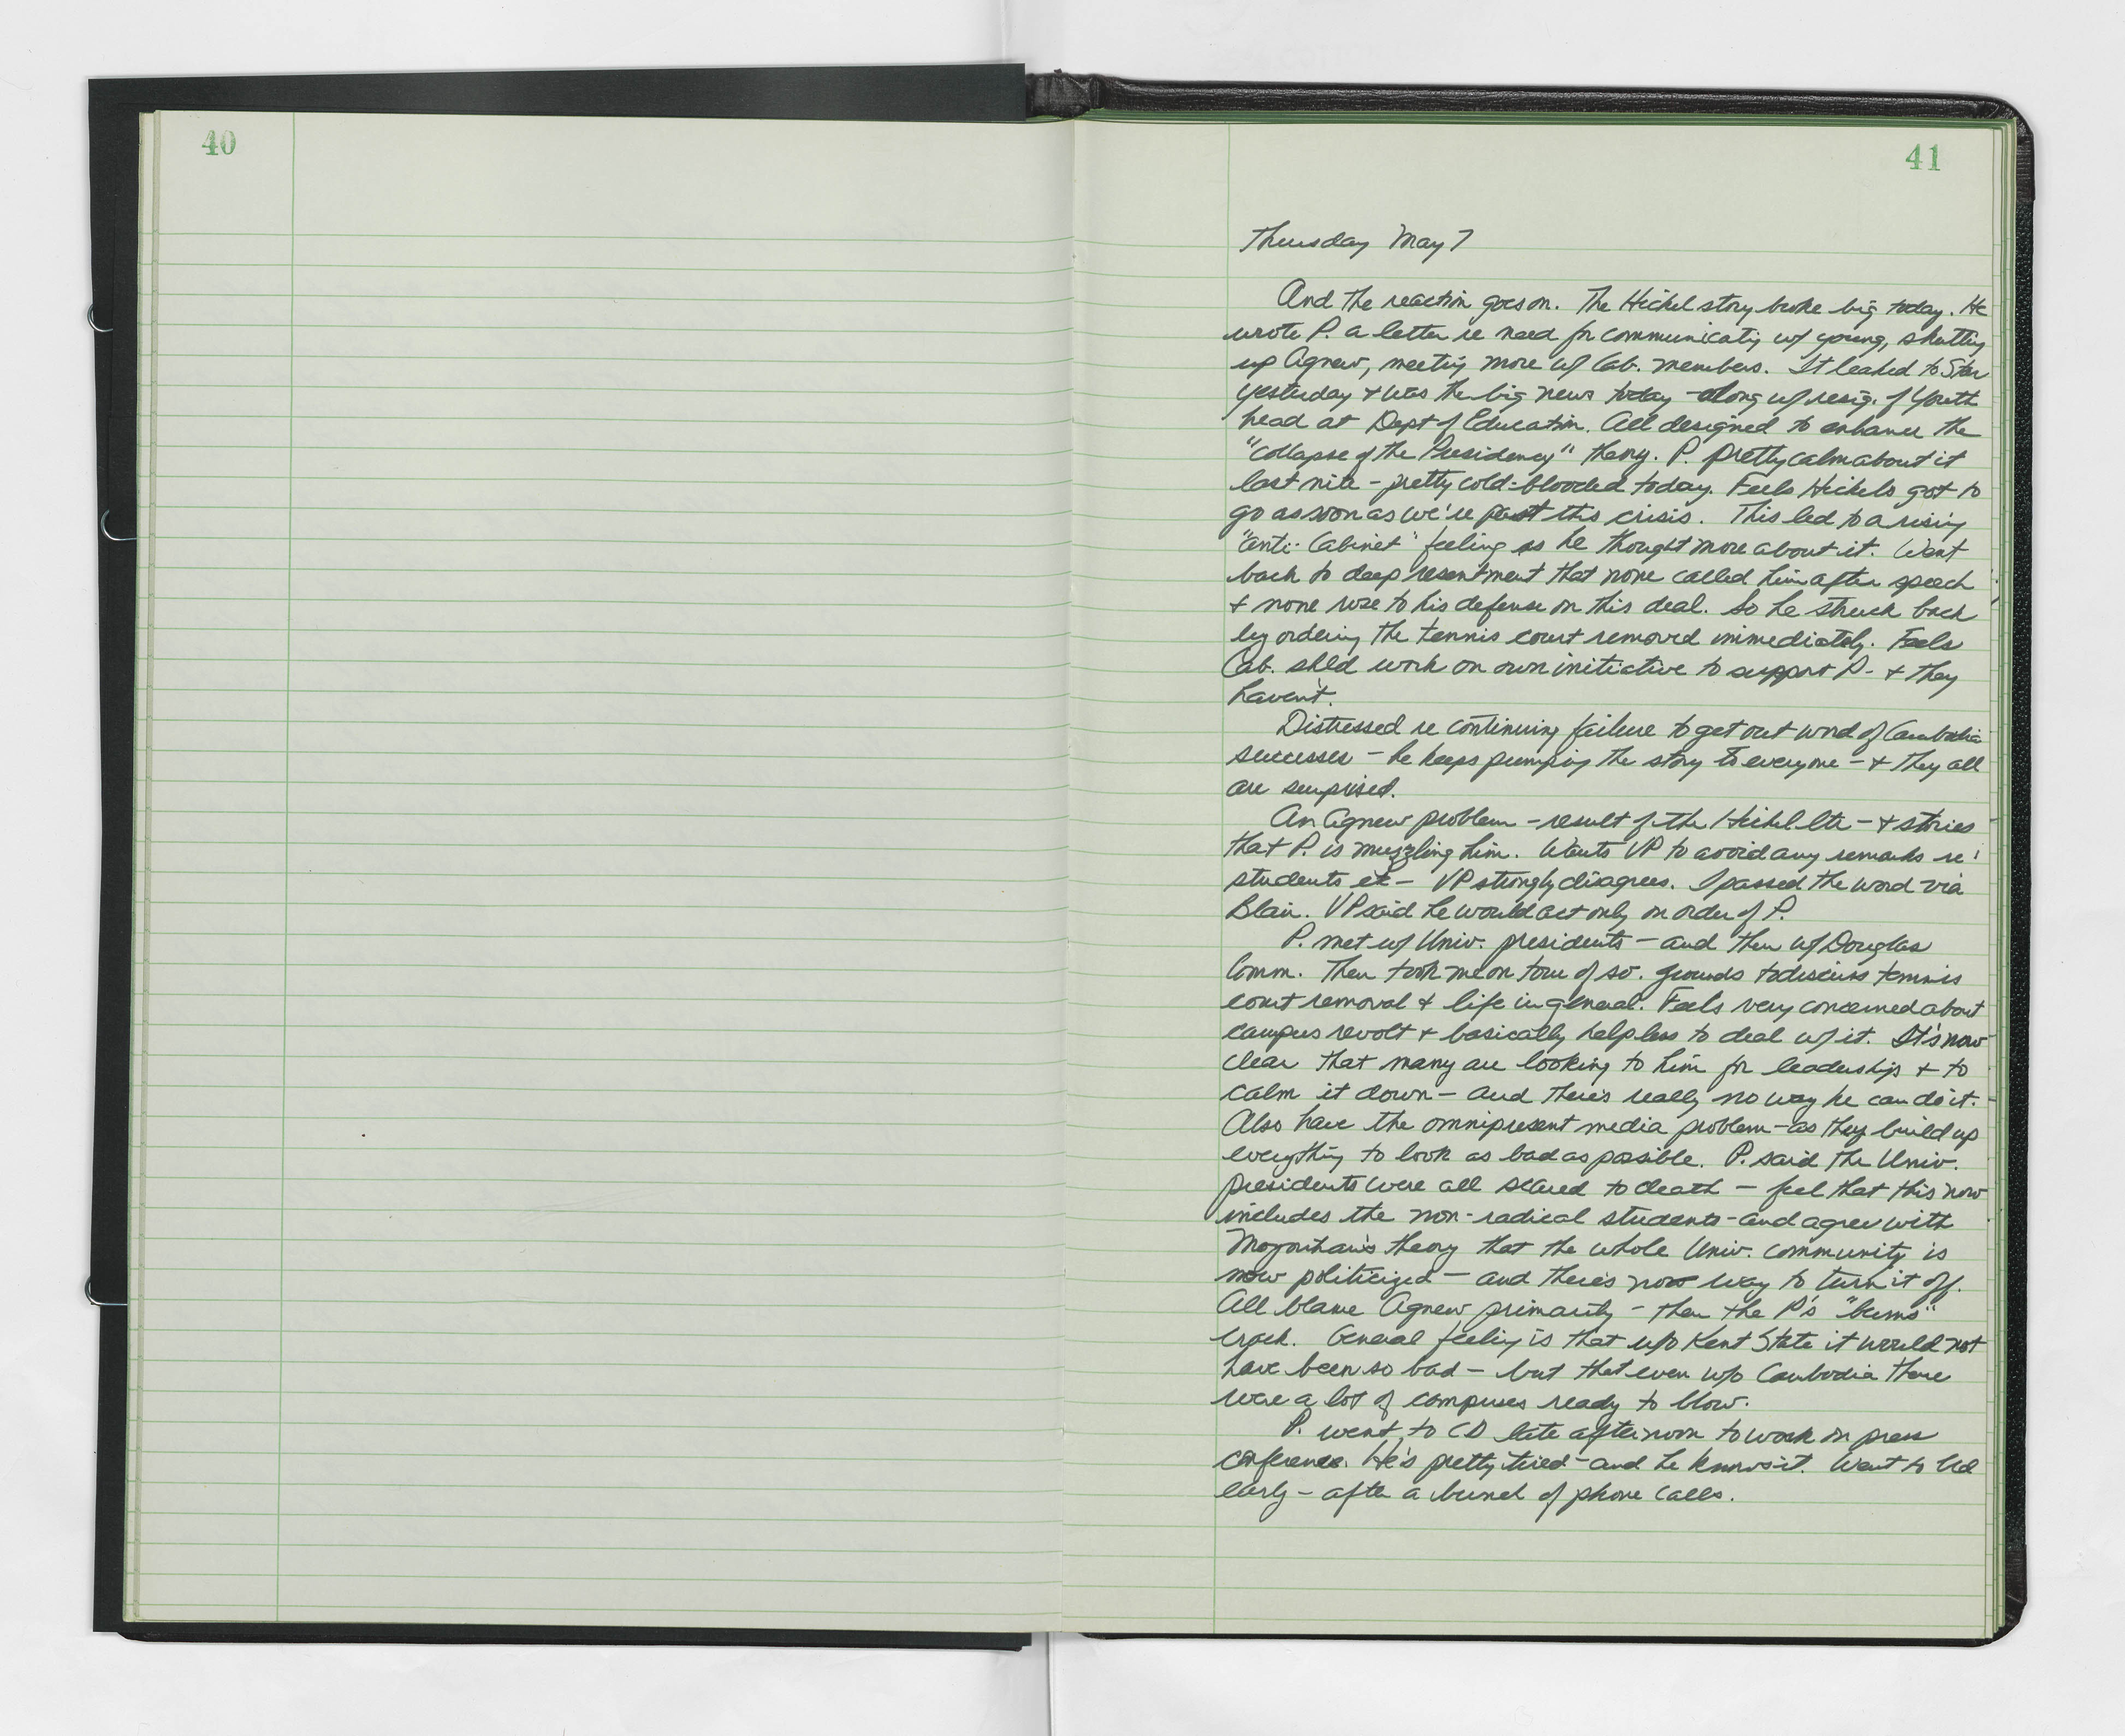 40
41
Thursday May 7
And the reaction goes on. The Hickel story broke big today. He
wrote P. a letter re need for communicatig w/ young, shutting
up Agnew, meeting more w/ Cab. members. It leaked to Star
yesterday + was the big news today - along w/ resig. of Youth
head at Dept of Education. All designed to enhance the
"collapse of the Presidency" theory. P. pretty calm about it
last nite - pretty cold-blooded today. Feels Hickels got to
go as soon as we're past this crisis. This led to a rising
"anti-Cabinet" feeling as he thought more about it. Went
back to deep resentment that none called him after speech
+ none rose to his defense on this deal. So he struck back
by ordering the tennis court removed immediately. Feels
Cab. shld work on own initiative to support P - + they
haven't.
Distressed re continuing failure to get out word of Cambodia
successes - he keeps pumping the story to everyone - + they all
are surprised.
An Agnew problem - result of the Hickel ltr - + stories
that P. is muzzling him. Wants VP to avoid any remarks re
students etc - VP strongly disagrees. I passed the word via
Blair. VP said he would act only on order of P.
P. met w/ Univ. presidents - and then w/ Douglas
Comm. Then took me on tour of so. grounds to discuss tennis
court removal + life in general. Feels very concerned about
campus revolt + basically helpless to deal w/ it. It's now
clear that many are looking to him for leadership + to
calm it down - and there's really no way he can do it.
Also have the omnipresent media problem - as they build up
everything to look as bad as possible. P. said the Univ.
presidents were all scared to death - feel that this now
includes the non-radical students - and agree with
Moynihan's theory that the whole Univ. community is
now politicized - and there's now way to turn it off.
All blame Agnew primarily - then the P's "bums"
crack. General feeling is that w/o Kent State it would not
have been so bad - but that even w/o Cambodia there
were a lot of campuses ready to blow.
P. went to CD late afternoon to work on press
conference. He's pretty tired - and he knows it. Went to bed
early - after a bunch of phone calls.